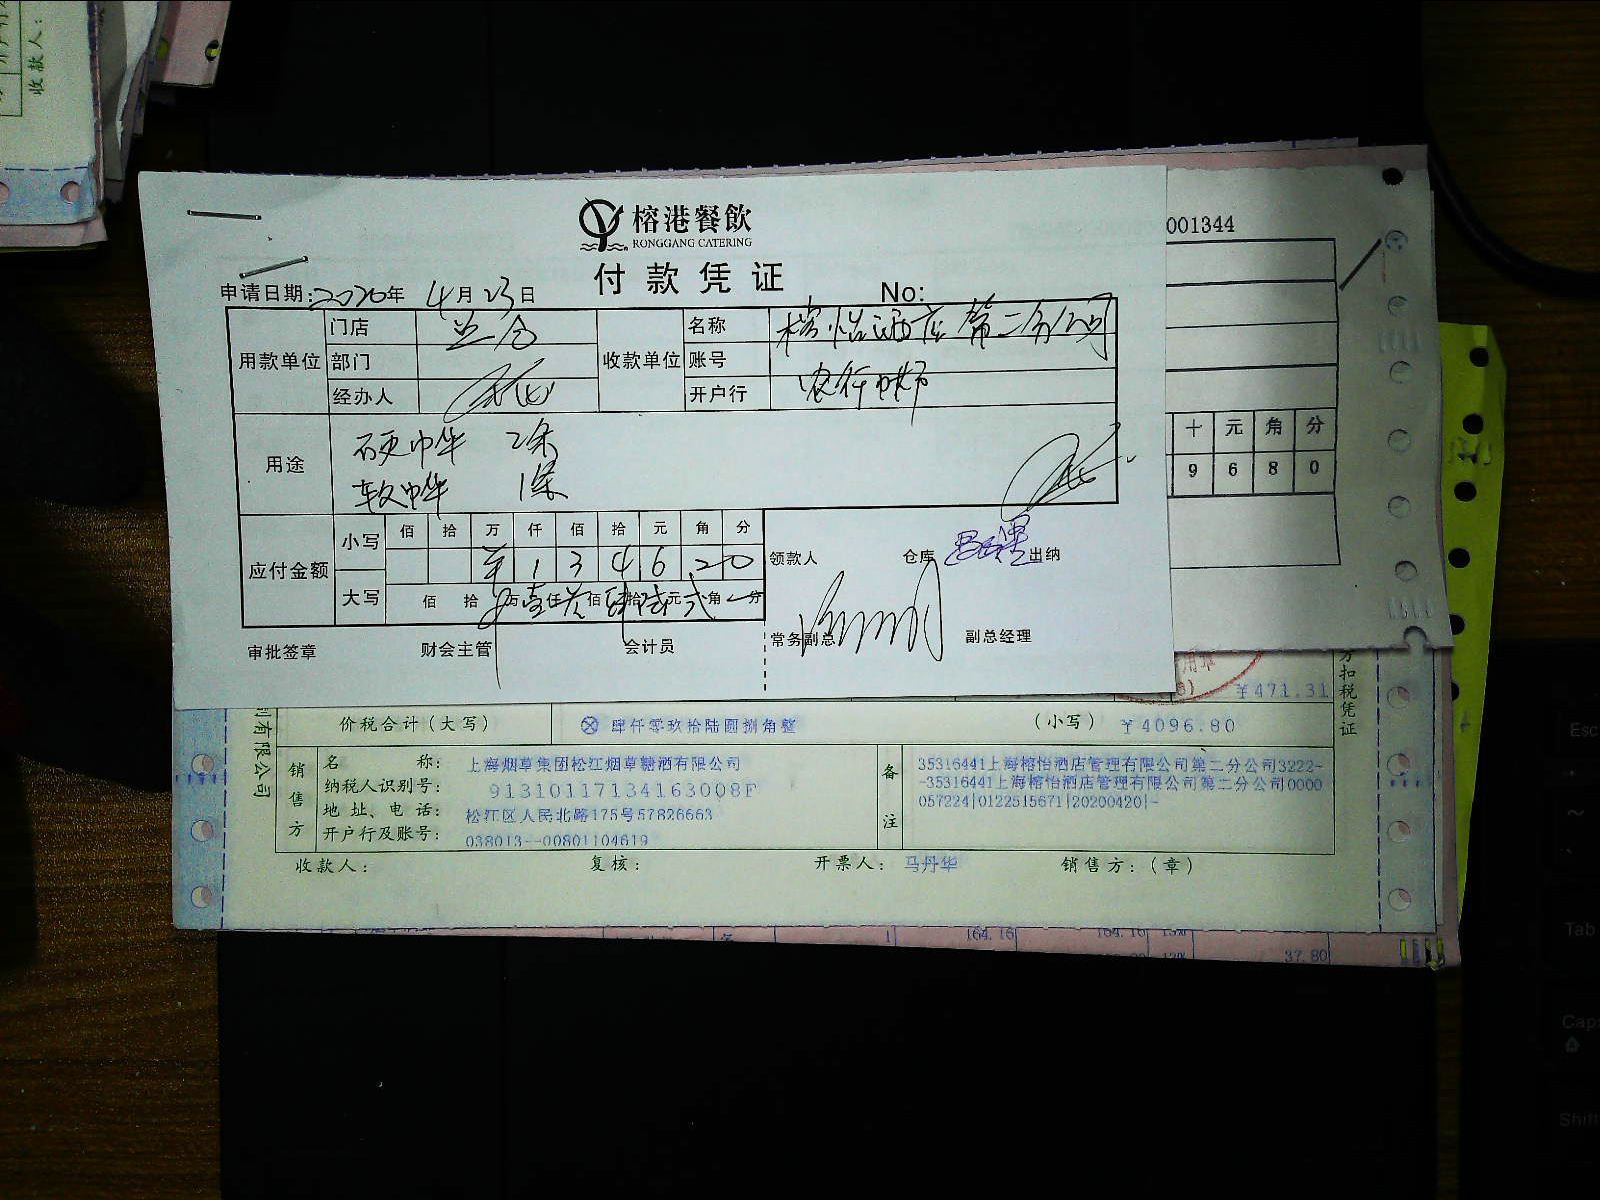 收款人:
榕港餐飲
RONGGANG CATERING
付款凭证
申请日期: 2020年 4月 23日
No:
001344
用款单位 门店 总仓 收款单位 名称 榕怡酒店第二分公司
部门 账号
经办人 开户行 农行
用途 硬中华 2条
软中华 1条
十 元 角 分
9 6 8 0
应付金额 小写 佰 拾 万 仟 佰 拾 元 角 分
¥ 1 3 4 6 2 0
大写 佰 拾 万 壹仟 叁佰 肆拾 陆元 贰角 分
领款人 仓库 出纳
审批签章 财会主管 会计员 常务副总 副总经理
¥471.31
方扣税凭证
价税合计(大写) ⊗ 肆仟零玖拾陆圆捌角整 (小写) ¥4096.80
有限公司
销售方
名称: 上海烟草集团松江烟草糖酒有限公司
纳税人识别号: 91310117134163008F
地址、电话: 松江区人民北路175号57826663
开户行及账号: 038013--00801104619
备注
35316441上海榕怡酒店管理有限公司第二分公司3222-
-35316441上海榕怡酒店管理有限公司第二分公司0000
057224|0122515671|20200420|-
收款人: 复核: 开票人: 马丹华 销售方:(章)
1 164.16 164.16 13%
13% 37.80
Esc
Tab
Caps
Shift